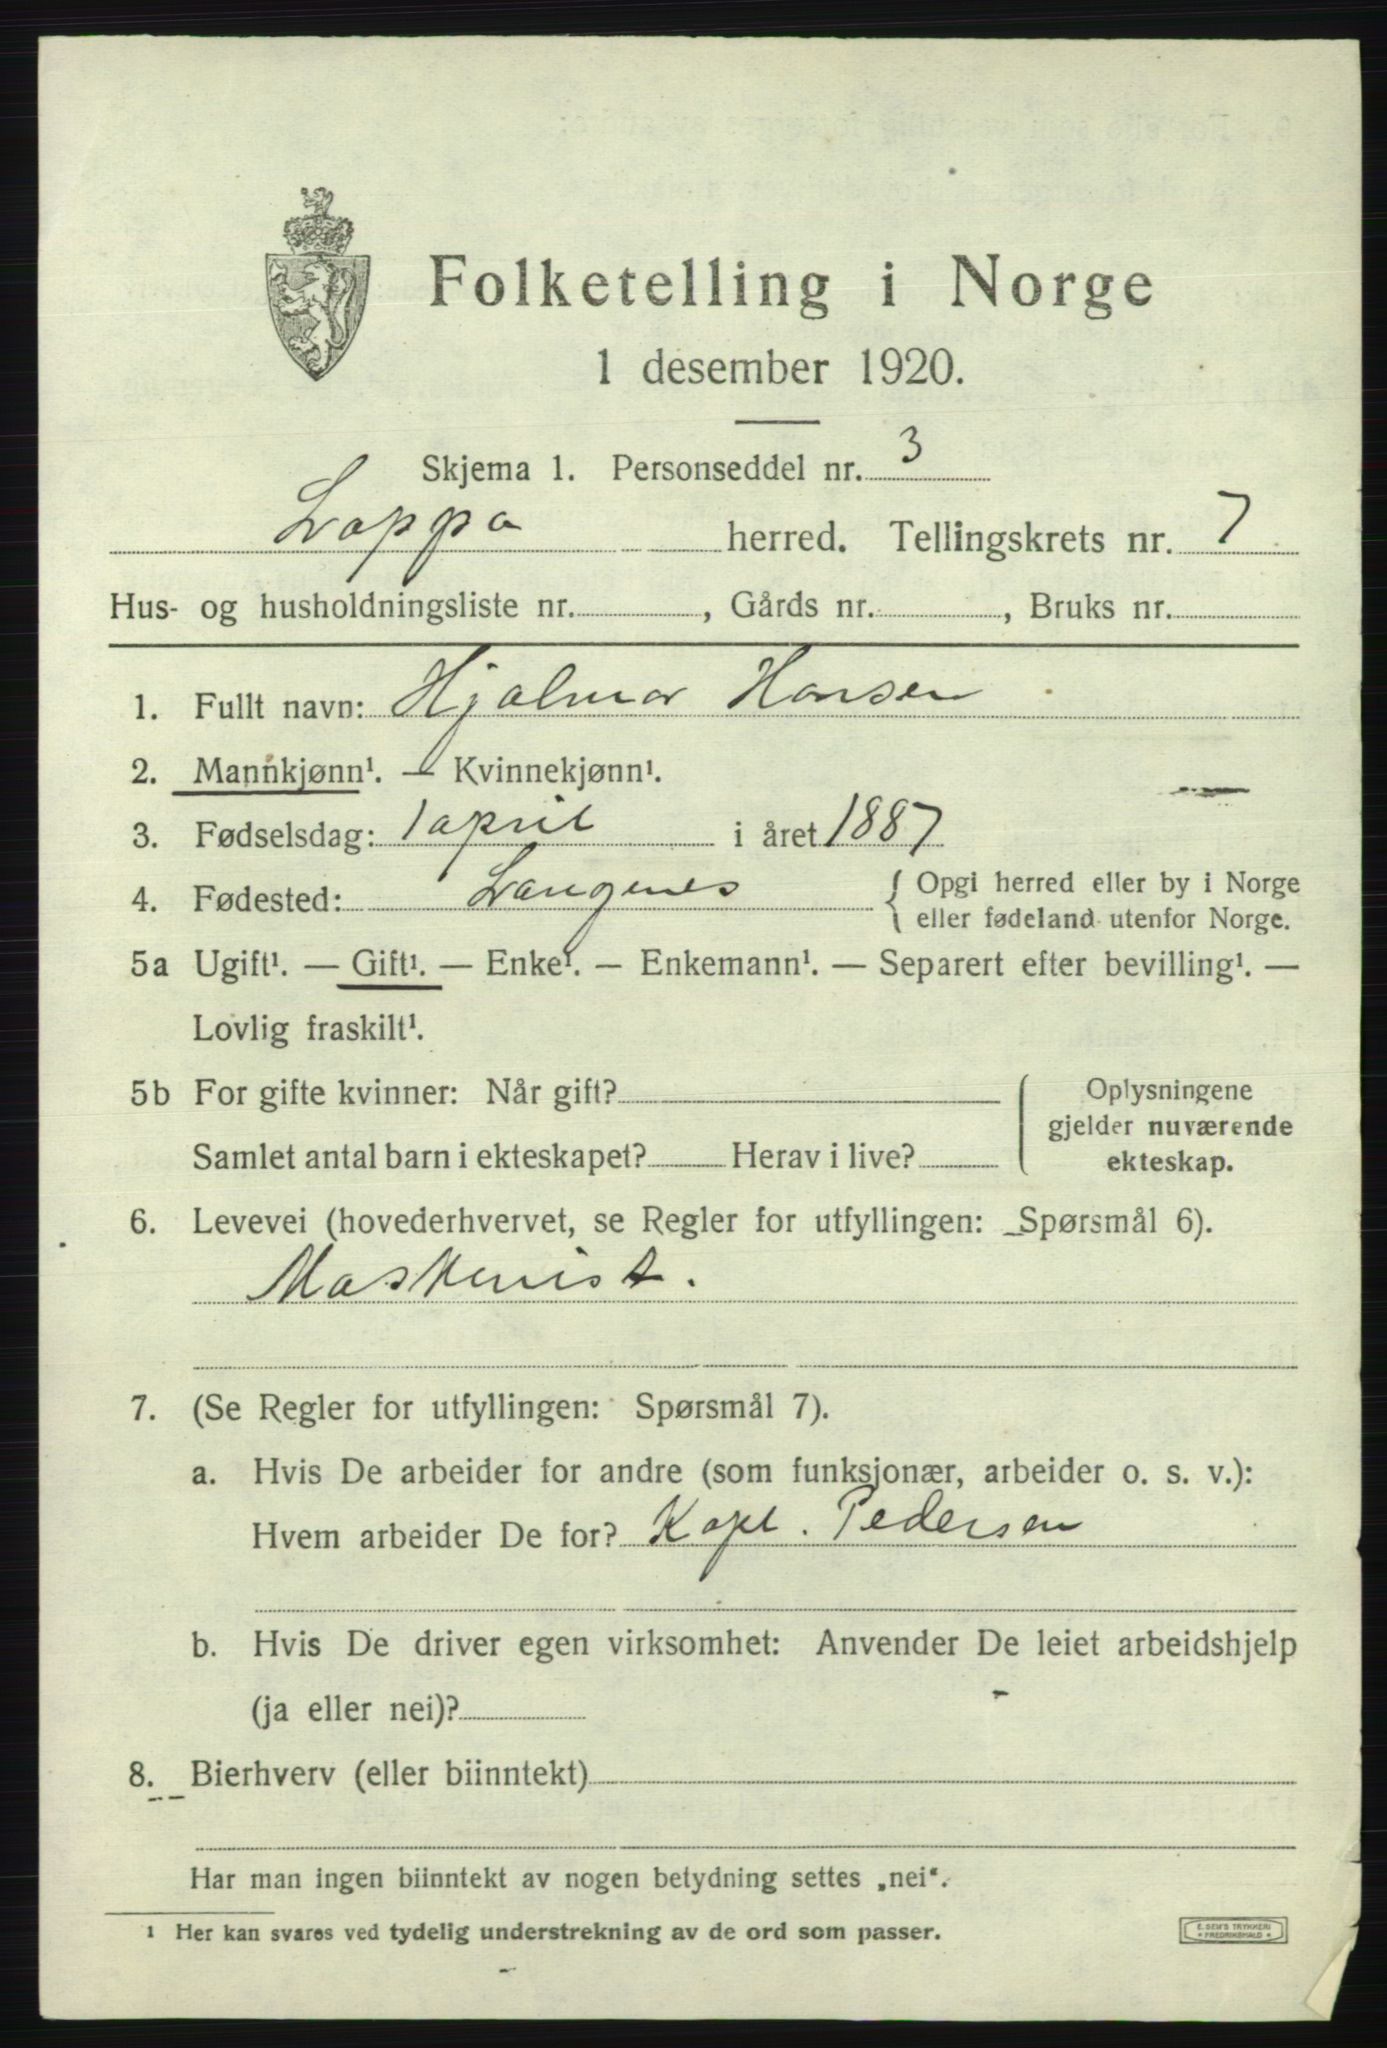 Folketelling i Norge
1 desember 1920.
Skjema 1. Personseddel nr. 3
Loppa herred. Tellingskrets nr. 7
Hus- og husholdningsliste nr. , Gårds nr. , Bruks nr.
1. Fullt navn: Hjalmar Hansen
2. Mannkjønn¹. — Kvinnekjønn¹.
3. Fødselsdag: 1 april i året 1887
4. Fødested: Langenes { Opgi herred eller by i Norge
eller fødeland utenfor Norge.
5a Ugift¹. — Gift¹. — Enke¹. — Enkemann¹. — Separert efter bevilling¹. —
Lovlig fraskilt¹.
5b For gifte kvinner: Når gift? Oplysningene
gjelder nuværende
Samlet antal barn i ekteskapet? Herav i live? ekteskap.
6. Levevei (hovederhvervet, se Regler for utfyllingen: Spørsmål 6).
Maskenist.
7. (Se Regler for utfyllingen: Spørsmål 7).
a. Hvis De arbeider for andre (som funksjonær, arbeider o. s. v.):
Hvem arbeider De for? Kapt. Pedersen
b. Hvis De driver egen virksomhet: Anvender De leiet arbeidshjelp
(ja eller nei)?
8. Bierhverv (eller biinntekt)
Har man ingen biinntekt av nogen betydning settes „nei“.
¹ Her kan svares ved tydelig understrekning av de ord som passer.
E. SEM'S TRYKKERI
* FREDRIKSHALD *